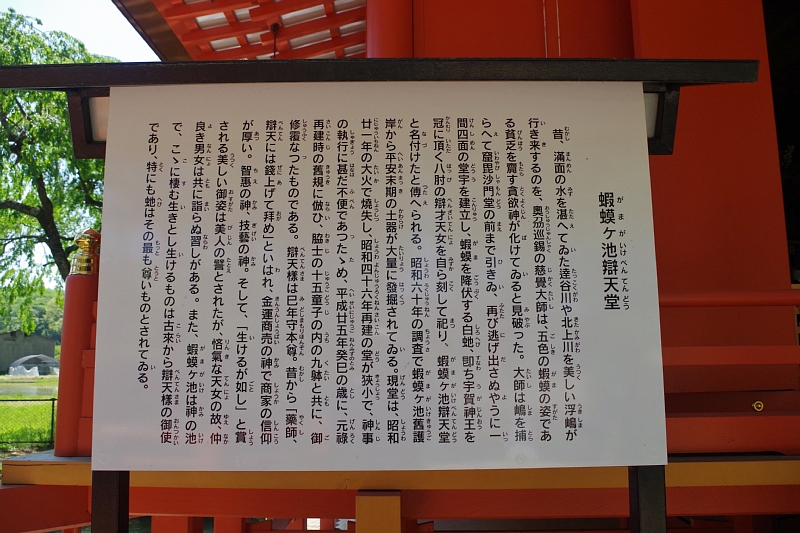 蝦蟆ヶ池辯天堂
昔、滿面の水を湛へてゐた達谷川や北上川を美しい浮嶋が
行き来するのを、奥刕巡錫の慈覺大師は、五色の蝦蟆の姿であ
る貧乏を齎す貪欲神が化けてゐると見破った。大師は嶋を捕
らへて窟毘沙門堂の前まで引き、再び逃げ出さぬやうに一
間四面の堂宇を建立し、蝦蟆を降伏する白虵、即ち宇賀神王を
冠に頂く八肘の辯才天女を自ら刻して祀り、蝦蟆ヶ池辯天堂
と名付けたと傳へられる。昭和六十年の調査で蝦蟆ヶ池舊護
岸から平安末期の土器が大量に發掘されてゐる。現堂は、昭和
廿一年の大火で燒失し、昭和四十六年再建の堂が狹小で、神事
の執行に甚だ不便であつたゝめ、平成廿五年癸巳の歲に、元祿
再建時の舊規に倣ひ、脇士の十五童子の内の九躰と共に、御
修覆なつたものである。辯天樣は巳年守本尊。昔から「藥師、
辯天には錢上げて拜め」といはれ、金運商売の神で商家の信仰
が厚い。智惠の神、技藝の神。そして、「生けるが如し」と賞
される美しい御姿は美人の譬とされたが、悋氣な天女の故、仲
良き男女は共に詣らぬ習しがある。また、蝦蟆ヶ池は神の池
で、こゝに棲む生きとし生けるものは古來から辯天樣の御使
であり、特にも虵はその最も尊いものとされてゐる。